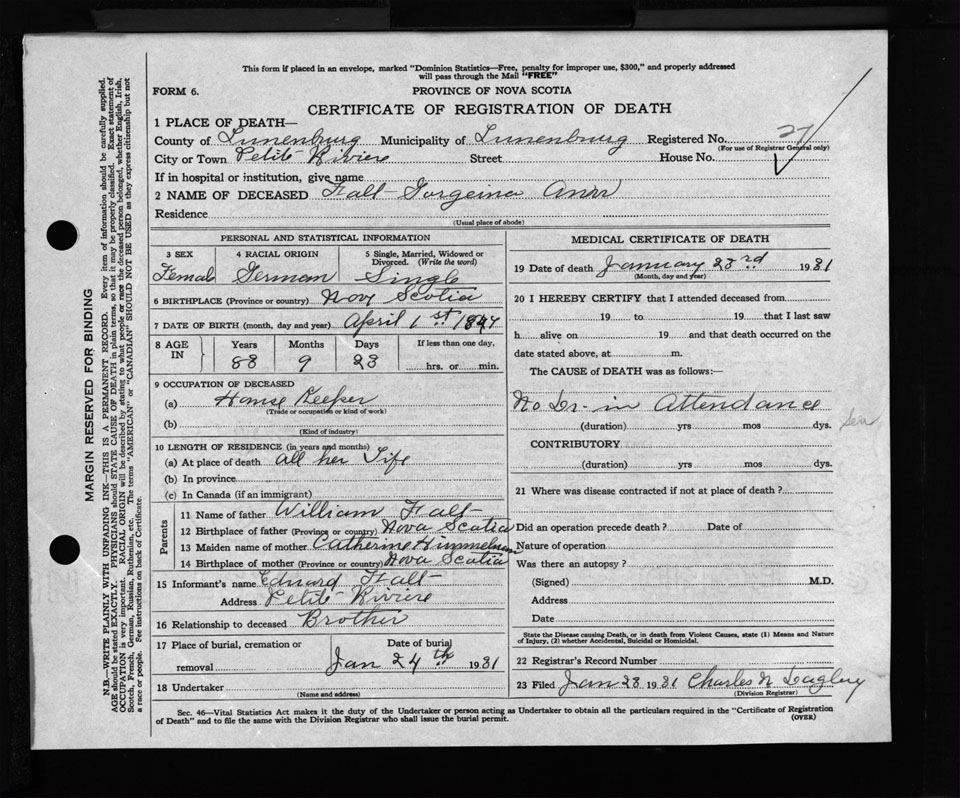 This form if placed in an envelope, marked "Dominion Statistics—Free, penalty for improper use, $300," and properly addressed
will pass through the Mail "FREE"
FORM 6.
PROVINCE OF NOVA SCOTIA
CERTIFICATE OF REGISTRATION OF DEATH
1 PLACE OF DEATH—
County of Lunenburg Municipality of Lunenburg Registered No. 27
(For use of Registrar General only)
City or Town Petite Riviere Street House No.
If in hospital or institution, give name
2 NAME OF DECEASED Falt Gorgeina Ann
Residence
(Usual place of abode)
PERSONAL AND STATISTICAL INFORMATION
3 SEX 4 RACIAL ORIGIN 5 Single, Married, Widowed or
Divorced. (Write the word)
Female German Single
6 BIRTHPLACE (Province or country) Nova Scotia
7 DATE OF BIRTH (month, day and year) April 1st
8 AGE IN Years Months Days If less than one day,
88 9 23 hrs. or min.
9 OCCUPATION OF DECEASED
(a) House Keeper
(Trade or occupation or kind of work)
(b)
(Kind of industry)
10 LENGTH OF RESIDENCE (in years and months)
(a) At place of death all her Life
(b) In province
(c) In Canada (if an immigrant)
Parents
11 Name of father William Falt
12 Birthplace of father (Province or country) Nova Scotia
13 Maiden name of mother Catherine Himmelman
14 Birthplace of mother (Province or country) Nova Scotia
15 Informant's name Edward Falt
Address Petite Riviere
16 Relationship to deceased Brother
17 Place of burial, cremation or Date of burial
removal Jan 24th 1931
18 Undertaker
(Name and address)
MEDICAL CERTIFICATE OF DEATH
19 Date of death January 23rd 1931
(Month, day and year)
20 I HEREBY CERTIFY that I attended deceased from
19 to 19 that I last saw
h alive on 19 and that death occurred on the
date stated above, at m.
The CAUSE of DEATH was as follows:—
No Dr. in Attendance
(duration) yrs mos dys.
CONTRIBUTORY
(duration) yrs mos dys.
21 Where was disease contracted if not at place of death?
Did an operation precede death? Date of
Nature of operation
Was there an autopsy?
(Signed) M.D.
Address
Date
State the Disease causing Death, or in death from Violent Causes, state (1) Means and Nature
of Injury, (2) whether Accidental, Suicidal or Homicidal.
22 Registrar's Record Number
23 Filed Jan 23 1931 Charles N
(Division Registrar)
Sec. 46—Vital Statistics Act makes it the duty of the Undertaker or person acting as Undertaker to obtain all the particulars required in the "Certificate of Registration
of Death" and to file the same with the Division Registrar who shall issue the burial permit.
(OVER)
MARGIN RESERVED FOR BINDING
N.B.—WRITE PLAINLY WITH UNFADING INK—THIS IS A PERMANENT RECORD. Every item of information should be carefully supplied.
AGE should be stated EXACTLY. PHYSICIANS should STATE CAUSE OF DEATH in plain terms, so that it may be properly classified. Exact statement of
OCCUPATION is very important. RACIAL ORIGIN will be described by stating to what people or race the deceased person belonged, whether English, Irish,
Scotch, French, German, Russian, Ruthenian, etc. The terms "AMERICAN" or "CANADIAN" SHOULD NOT BE USED as they express citizenship but not
a race or people. See instructions on back of Certificate.